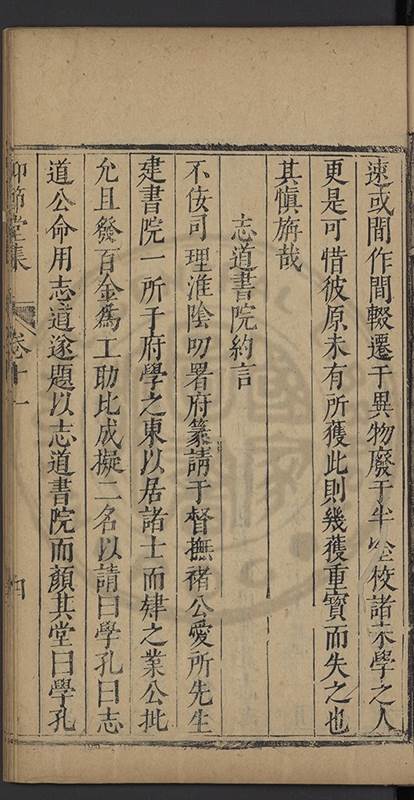 速或間作間輟遷于異物廢于半塗校諸未學之人
更是可惜彼原未有所獲此則幾獲重寶而失之也
其愼旃哉
志道書院約言
不佞司理淮陰叨署府篆請于督撫禇公愛所先生
建書院一所于府學之東以居諸士而肄之業公批
允且發百金爲工助比成擬二名以請曰學孔曰志
道公命用志道遂題以志道書院而顏其堂曰學孔
仰節堂集 卷十一 四